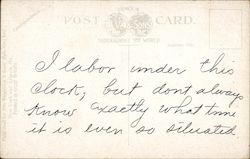 POST CARD.
THROUGHOUT THE WORLD
I labor under this
clock, but dont always
know exactly what time
it is even so situated